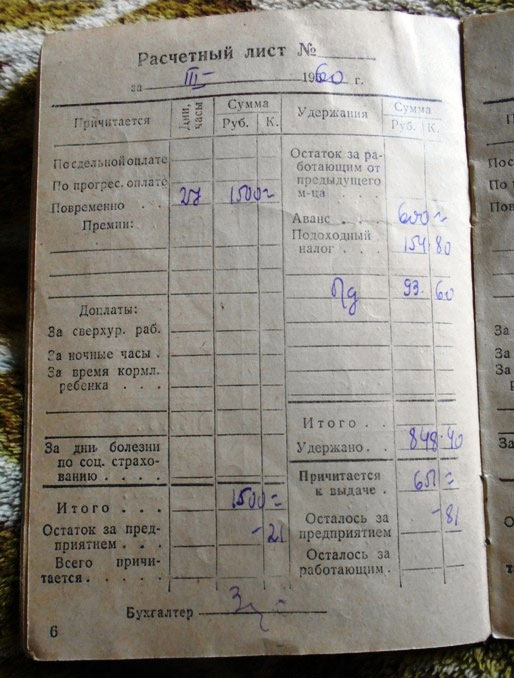 Расчетный лист №
за III 1960 г.
Причитается Дни, часы Сумма Руб. К. Удержания Сумма Руб. К.
По сдельной оплате
По прогрес. оплате
Повременно . . . 27 1500=
Премии:
Доплаты:
За сверхур. раб.
За ночные часы .
За время кормл.
ребенка . . .
За дни болезни
по соц. страхо-
ванию . . . .
Итого . . . 1500=
Остаток за пред-
приятием . . . -21
Всего причи-
тается . . . . .
Остаток за ра-
ботающим от
предыдущего
м-ца . . .
Аванс . . . 600=
Подоходный
налог . . . 154-80
93-60
Итого . .
Удержано . . 848-40
Причитается
к выдаче . 651=
Осталось за
предприятием -81
Осталось за
работающим .
Бухгалтер
6
За
За
За